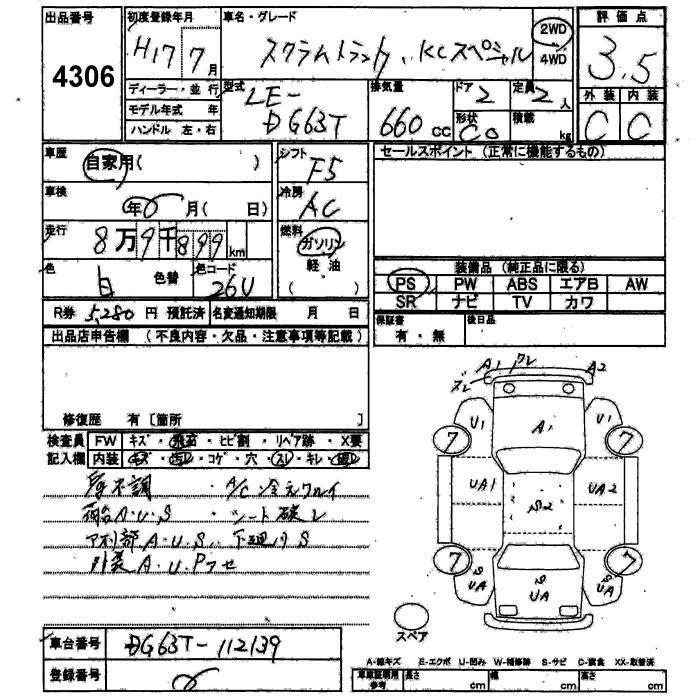 出品番号 初度登録年月 車名・グレード 評価点
4306 H17 7月 スクラムトラック、KCスペシャル 2WD 4WD 3.5
ディーラー・並行 型式 排気量 ドア 定員 外装 内装
モデル年式 年 LE-DG63T 660cc 2 2人 C C
ハンドル 左・右 形状 C○ 積載 kg
車歴 自家用( ) シフト F5 セールスポイント (正常に機能するもの)
車検 年0月( 日) 冷房 AC
走行 8万9千899km 燃料 ガソリン
軽・油
色 白 色替 色コード 26U ( )
装備品 (純正品に限る)
PS PW ABS エアB AW
SR ナビ TV カワ
R券 5,280 円 預託済 名変通知期限 月 日
保証書 有・無 後日品
出品店申告欄 (不良内容・欠品・注意事項等記載)
修復歴 有 [箇所 ]
検査員 FW キズ・飛石・ヒビ割・リペア跡・X要
記入欄 内装 キズ・汚レ・コゲ・穴・スレ・キレ・破レ
不調 ・A/C冷えワルイ
荷台A・U・S ・シート破レ
部A・U・S 下廻リS
外装A・U・P
A1 ワレ A2
ズレ
U1 A1 U1
7 7
UA1 S2 UA2
7 7
S UA S UA S UA
スペア
車台番号 DG63T-112139
A-線キズ E-エクボ U-凹み W-補修跡 S-サビ C-腐食 XX-取替済
登録番号
車庫証明用参考 長さ cm 幅 cm 高さ cm